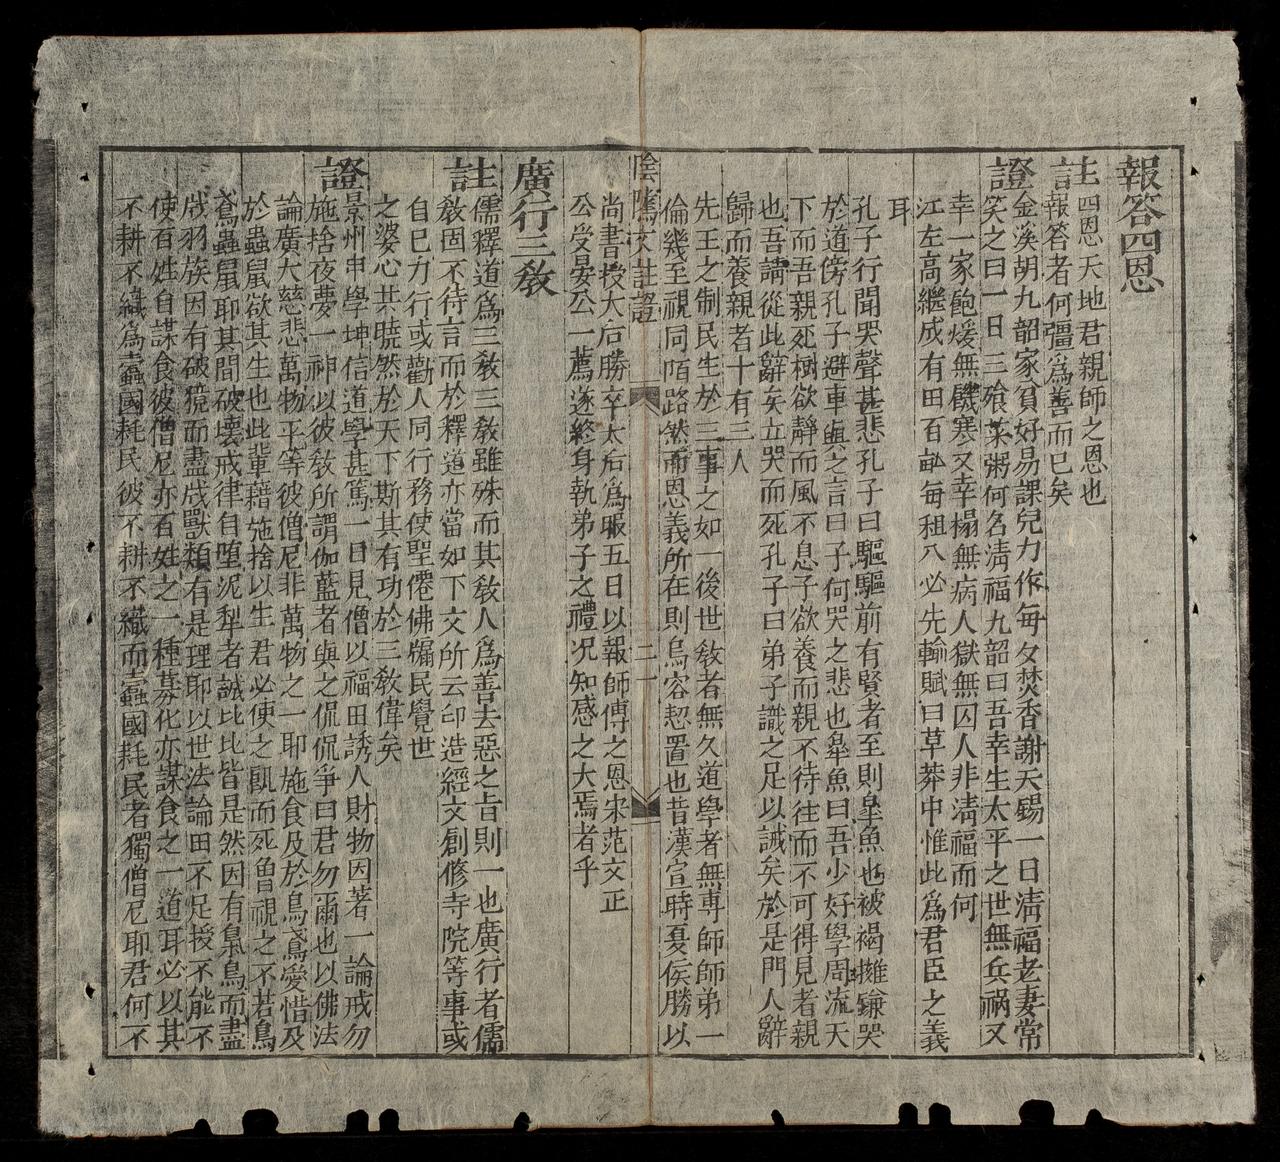 報答四恩
註四恩天地君親師之恩也
報答者何彊爲善而已矣
證金溪胡九韶家貧好易課兒力作每夕焚香謝天錫一日淸福老妻常
笑之曰一日三飱菜粥何名淸福九韶曰吾幸生太平之世無兵禍又
幸一家飽煖無饑寒又幸榻無病人獄無囚人非淸福而何
江左高繼成有田百畝每租入必先輸賦曰草莽中惟此爲君臣之義
耳
孔子行聞哭聲甚悲孔子曰驅驅前有賢者至則臯魚也被褐擁鎌哭
於道傍孔子避車與之言曰子何哭之悲也臯魚曰吾少好學周流天
下而吾親死樹欲靜而風不息子欲養而親不待往而不可得見者親
也吾請從此辭矣立哭而死孔子曰弟子識之足以誡矣於是門人辭
歸而養親者十有三人
先王之制民生於三事之如一後世敎者無久道學者無專師師弟一
倫幾至視同陌路然而恩義所在則烏容恝置也昔漢宣時夏侯勝以
陰騭文註證 二一
尚書授大后勝卒太后爲服五日以報師傅之恩宋范文正
公受晏公一薦遂終身執弟子之禮况知感之大焉者乎
廣行三敎
註儒釋道爲三敎三敎雖殊而其敎人爲善去惡之旨則一也廣行者儒
敎固不待言而於釋道亦當如下文所云印造經文創修寺院等事或
自己力行或勸人同行務使聖僊佛牖民覺世
之婆心共曉然於天下斯其有功於三敎偉矣
證景州申學坤信道學甚篤一日見僧以福田誘人財物因著一論戒勿
施捨夜夢一神以彼敎所謂伽藍者與之侃侃爭曰君勿爾也以佛法
論廣大慈悲萬物平等彼僧尼非萬物之一耶施食及於鳥鳶愛惜及
於蟲鼠欲其生也此輩藉施捨以生君必使之飢而死曾視之不若鳥
鳶蟲鼠耶其間破壞戒律自墮泥犁者誠比比皆是然因有梟鳥而盡
戕羽族因有破獍而盡戕獸類有是理耶以世法論田不足授不能不
使百姓自謀食彼僧尼亦百姓之一種募化亦謀食之一道耳必以其
不耕不織爲蠹國耗民彼不耕不織而蠹國耗民者獨僧尼耶君何不